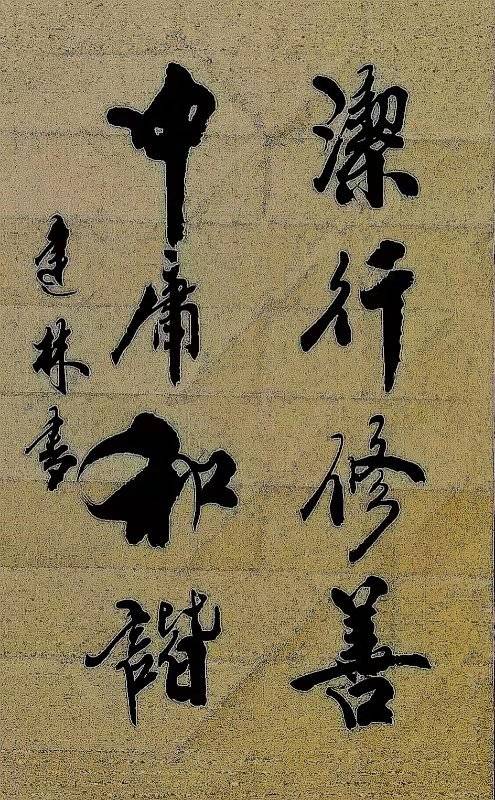 潔行修善
中庸和諧
建林書